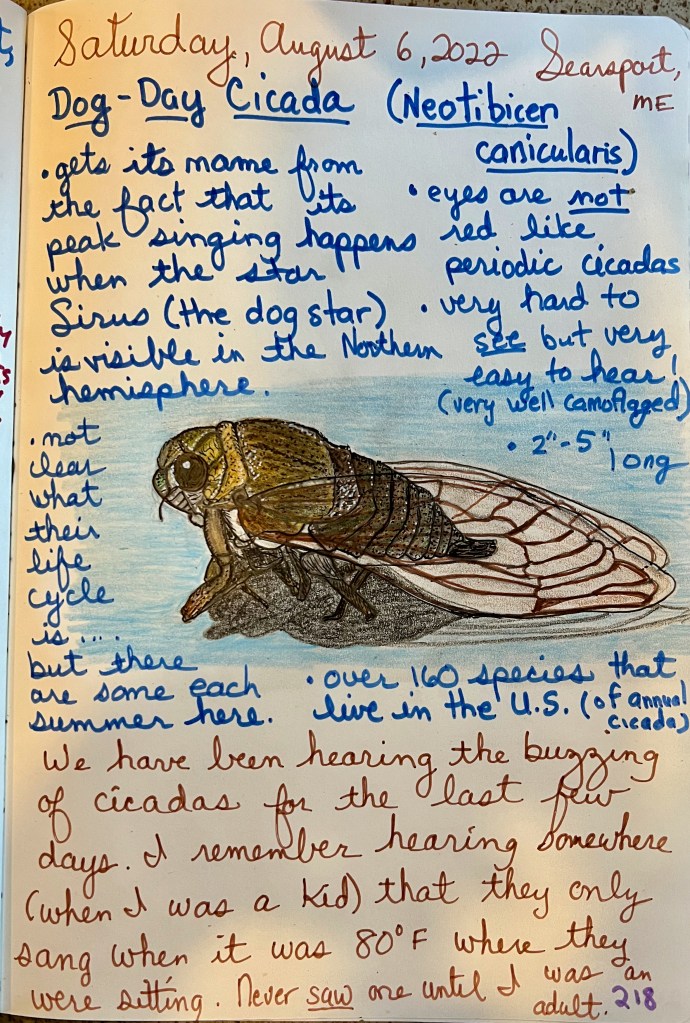 Saturday, August 6, 2022 Searsport,
ME
Dog-Day Cicada (Neotibicen
canicularis)
• gets its name from
the fact that its
peak singing happens
when the star
Sirus (the dog star)
is visible in the Northern
hemisphere.
• eyes are not
red like
periodic cicadas
• very hard to
see but very
easy to hear!
(very well camoflagged)
• 2"-5" long
• not
clear
what
their
life
cycle
is ....
but there
are some each
summer here.
• over 160 species that
live in the U.S. (of annual
cicada)
We have been hearing the buzzing
of cicadas for the last few
days. I remember hearing somewhere
(when I was a kid) that they only
sang when it was 80°F where they
were sitting. Never saw one until I was an
adult. 218